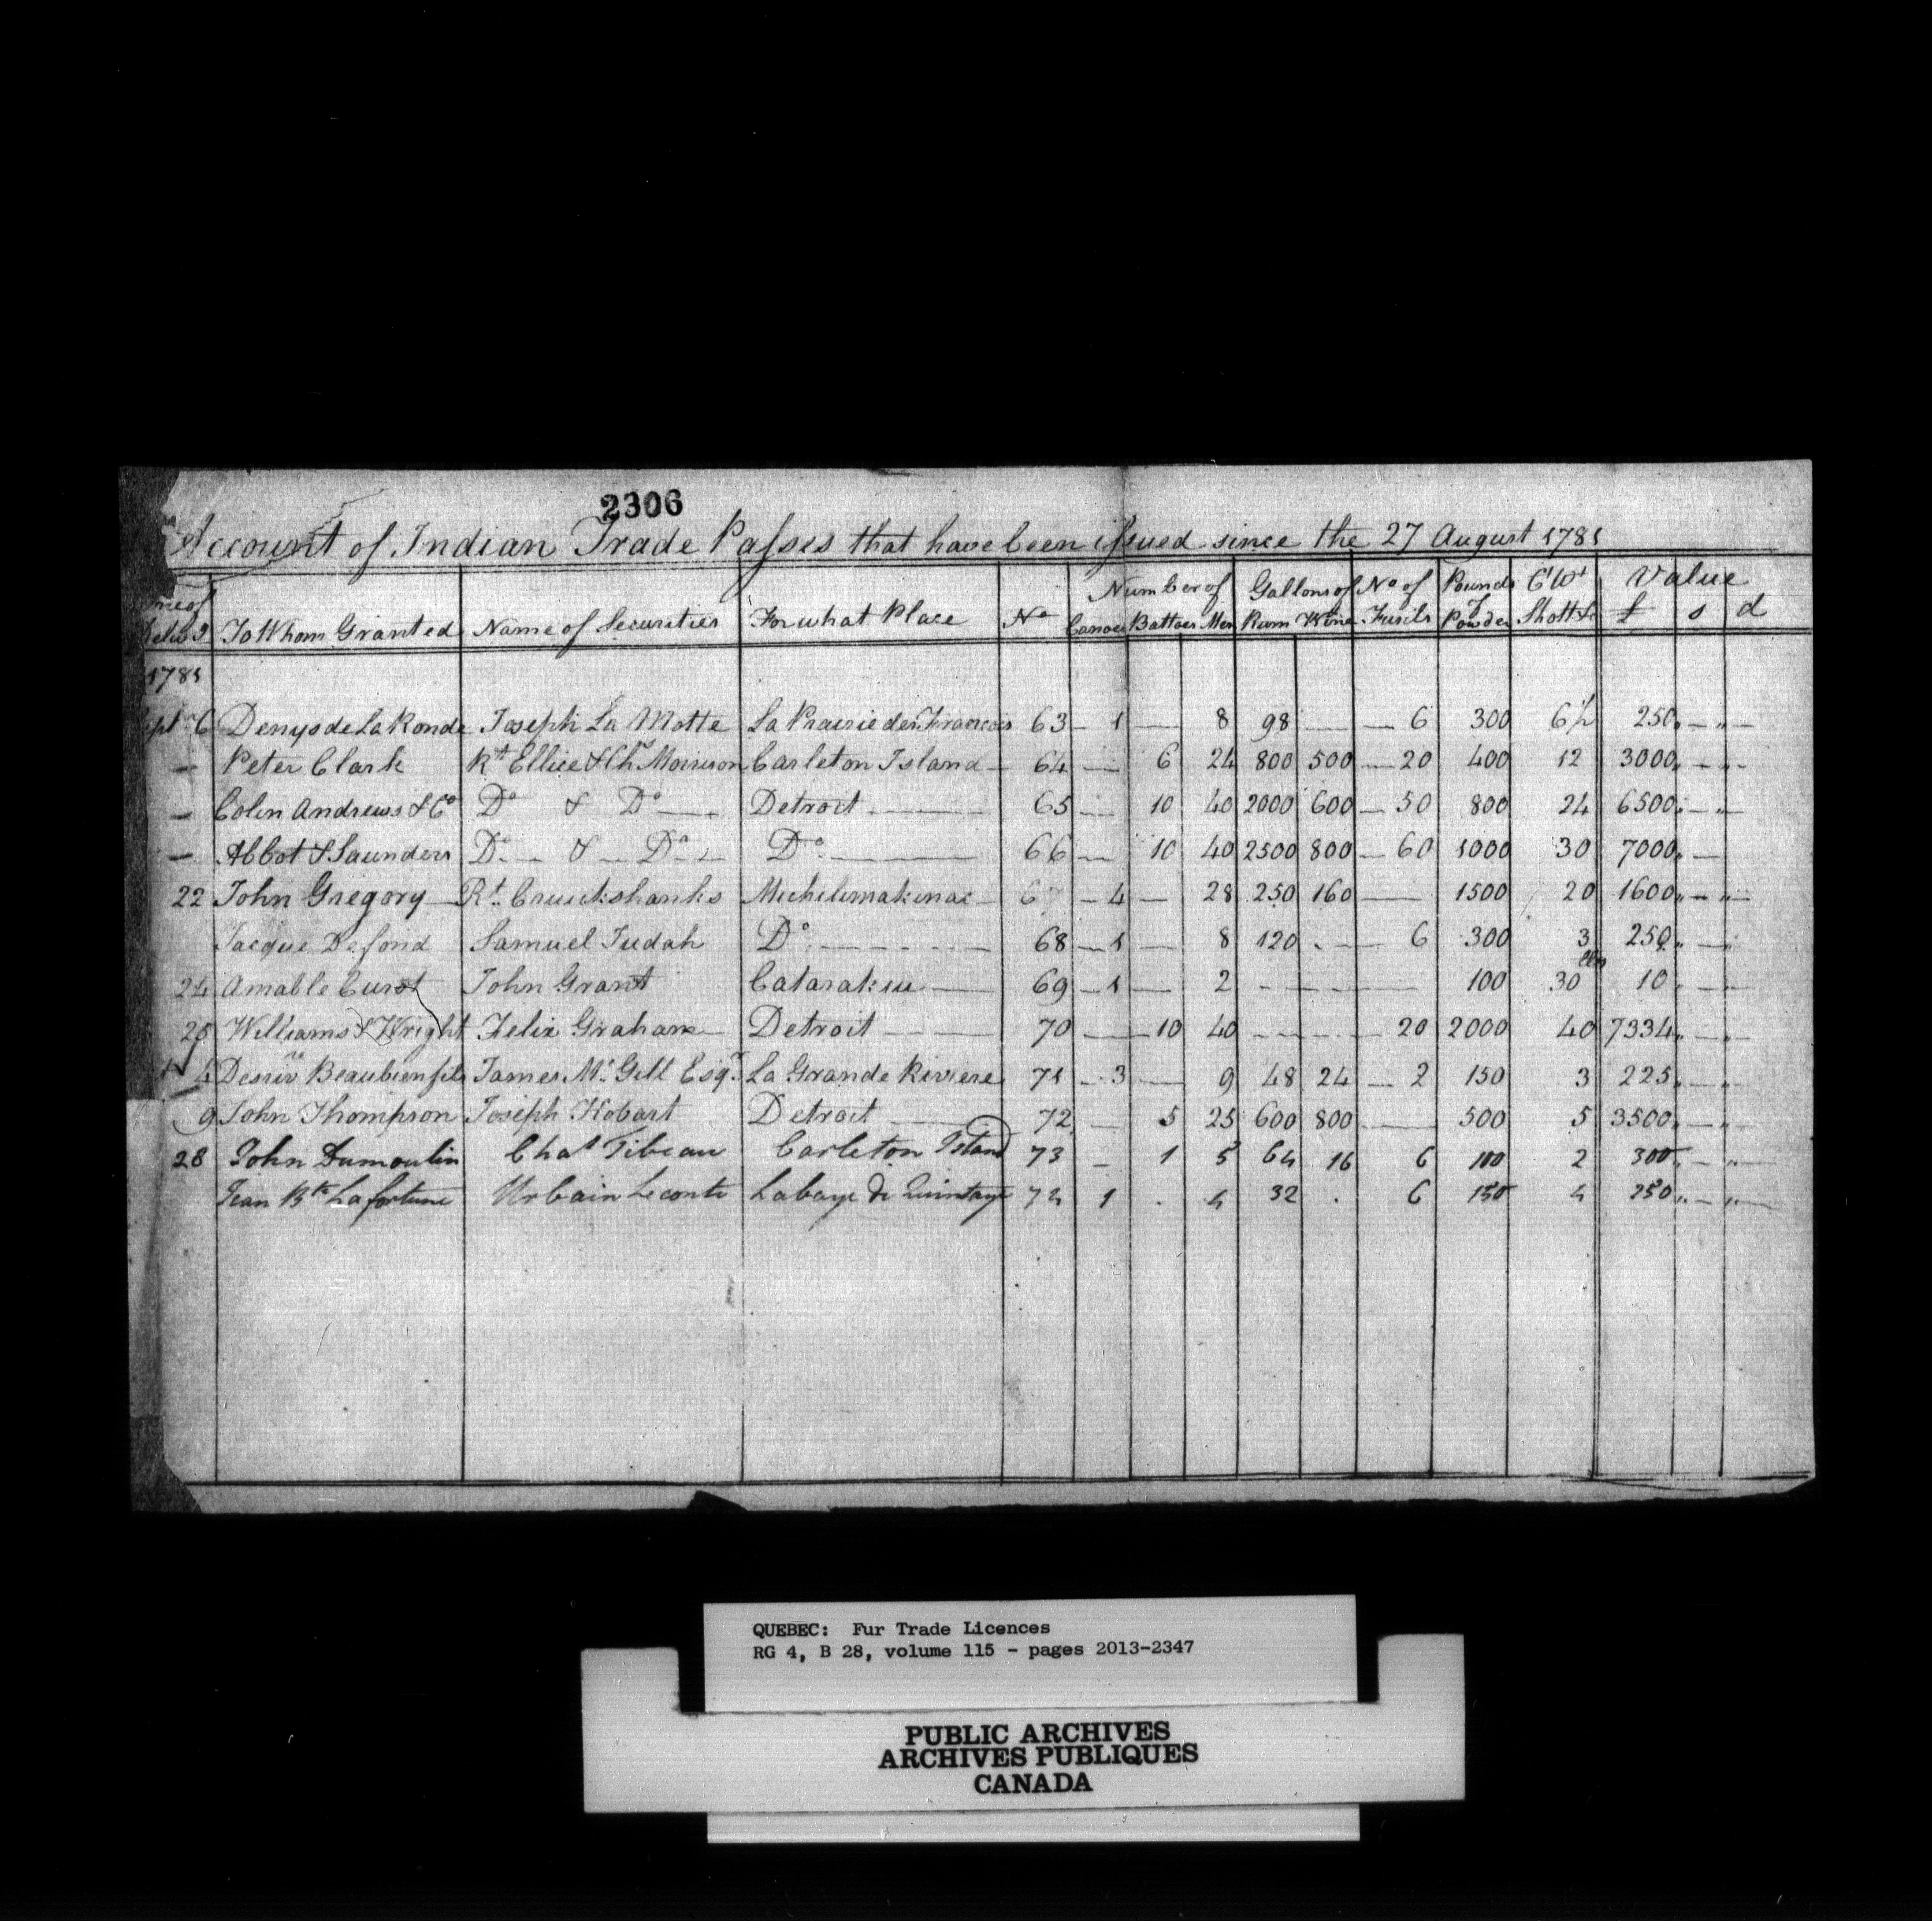 2306
Account of Indian Trade Passes that have been issued since the 27 August 1781
To Whom Granted Name of Securities For what Place No Number of Canoes Battoes Men Gallons of Rum Wine No of Fusils Pounds of Powder Ct Wt Shott & Value £ s d
1781
Sept 6 Denys de La Ronde Joseph La Motte La Prairie des Francois 63 1 — 8 98 — 6 300 6½ 250
— Peter Clark Rt Ellice & Chs Morrison Carleton Island 64 — 6 24 800 500 20 400 12 3000
— Colin Andrews & Co Do & Do Detroit 65 — 10 40 2000 600 50 800 24 6500
— Abbot & Saunders Do & Do Do 66 — 10 40 2500 800 60 1000 30 7000
22 John Gregory Rt Cruickshanks Michilimakinac 67 4 — 28 250 160 — 1500 20 1600
Jacque Defond Samuel Judah Do 68 1 — 8 120 — 6 300 3 250
24 Amable Curot John Grant Catarakui 69 1 — 2 — 100 30 lbs 10
25 Williams & Wright Felix Graham Detroit 70 — 10 40 — 20 2000 40 7334
4 Beaubien fils James McGill Esqr La Grande Riviere 71 3 — 9 48 24 2 150 3 225
9 John Thompson Joseph Hobart Detroit 72 — 5 25 600 800 — 500 5 3500
28 John Dumoulin Chas Tibeau Carleton Island 73 — 1 5 64 16 6 100 2 300
Jean Bte Lafortune Urbain Leconte Labaye de Quintaye 74 1 . 4 32 . 6 150 4 250
QUEBEC: Fur Trade Licences
RG 4, B 28, volume 115 - pages 2013-2347
PUBLIC ARCHIVES
ARCHIVES PUBLIQUES
CANADA